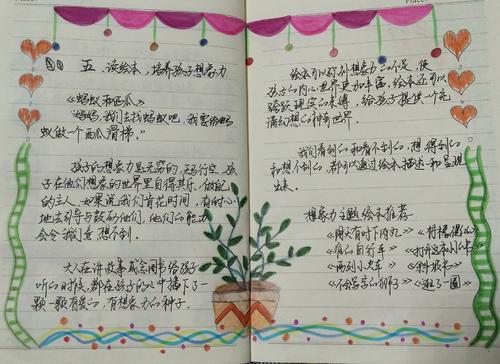 Place:
Place:
五、读绘本，培养孩子想象力
《蚂蚁和西瓜》
"妈妈，我们去找蚂蚁吧，我要你妈
蚁做一个西瓜滑梯。"
孩子的想象力是无穷的，天马行空，孩
子在他们想象的世界里自得其乐，做自己
的主人，如果说我们肯花时间，有耐心
地去引导与鼓励他们，他们的能力
会令我们意想不到。
大人在讲故事或念图书给孩子
听的时候，都在孩子的心中播下了一
颗一颗有爱的，有想象力的种子。
绘本可以弥补想象力的不足，使
孩子的内心世界更加丰富，绘本还可以
跨跃现实的束缚，给孩子提供一个充
满幻想的神奇世界。
我们有到的和看不到的，想得到的
和想不到的，都可以通过绘本描述和呈现
出来。
想象力主题绘本推荐
《阴天有时下肉丸》
《自行车》《打开这本小书》
《两列小火车》
《不会写字的狮子》《 了一圈》